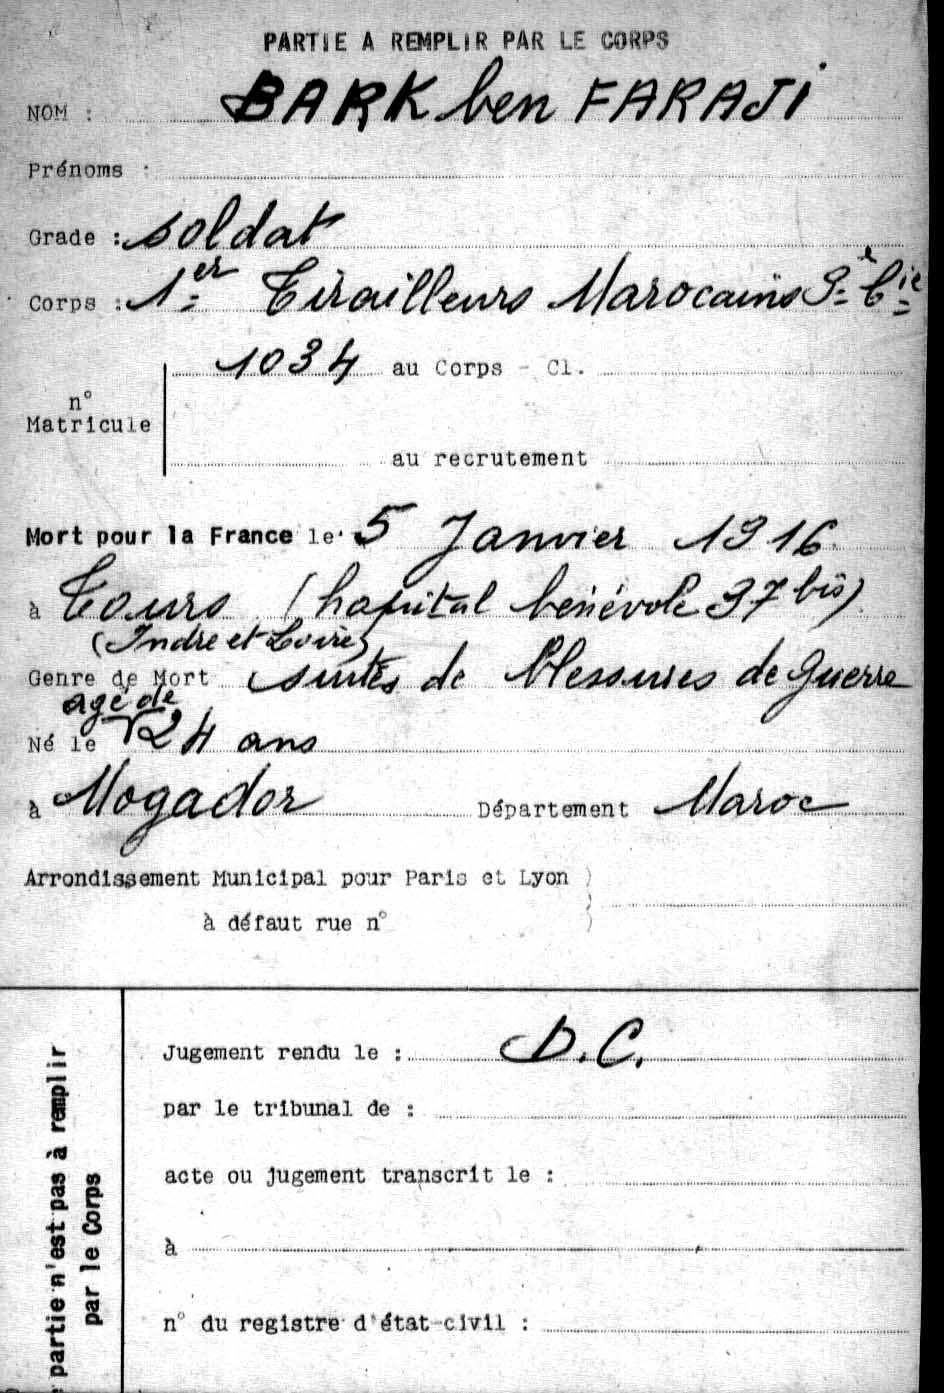 PARTIE A REMPLIR PAR LE CORPS
NOM : BARK ben FARAJI
Prénoms :
Grade : soldat
Corps : 1er Tirailleurs Marocains 9e Cie
1034 au Corps - Cl.
n°
Matricule
au recrutement
Mort pour la France le 5 Janvier 1916
à Tours (hopital bénévole 37 bis)
(Indre et Loire)
Genre de Mort suites de blessures de guerre
agé de
Né le 24 ans
à Mogador Département Maroc
Arrondissement Municipal pour Paris et Lyon
à défaut rue n°
Jugement rendu le : D.C.
par le tribunal de :
acte ou jugement transcrit le :
à
n° du registre d'état-civil :
partie n'est pas à remplir
par le Corps